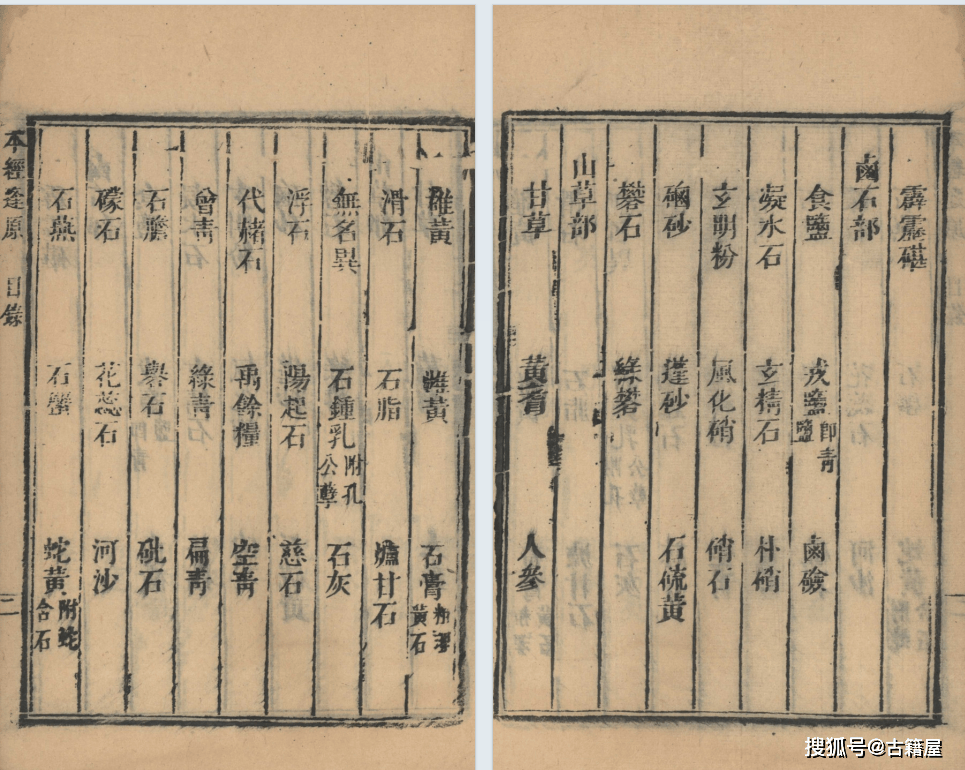 霹靂碪
鹵石部
食鹽 戎鹽即青鹽 鹵鹼
凝水石 玄精石 朴硝
玄明粉 風化硝 硝石
硇砂 蓬砂 石硫黃
礬石 綠礬
山草部
甘草 黃耆 人參
雄黃 雌黃 石膏 黃石
滑石 石脂 爐甘石
無名異 石鍾乳附孔公孽 石灰
浮石 陽起石 慈石
代赭石 禹餘糧 空青
曾青 綠青 扁青
石膽 礜石 砒石
礞石 花蕊石 河沙
石燕 石蟹 蛇黃附蛇含石
本經逢原 目錄 二
搜狐号@古籍屋